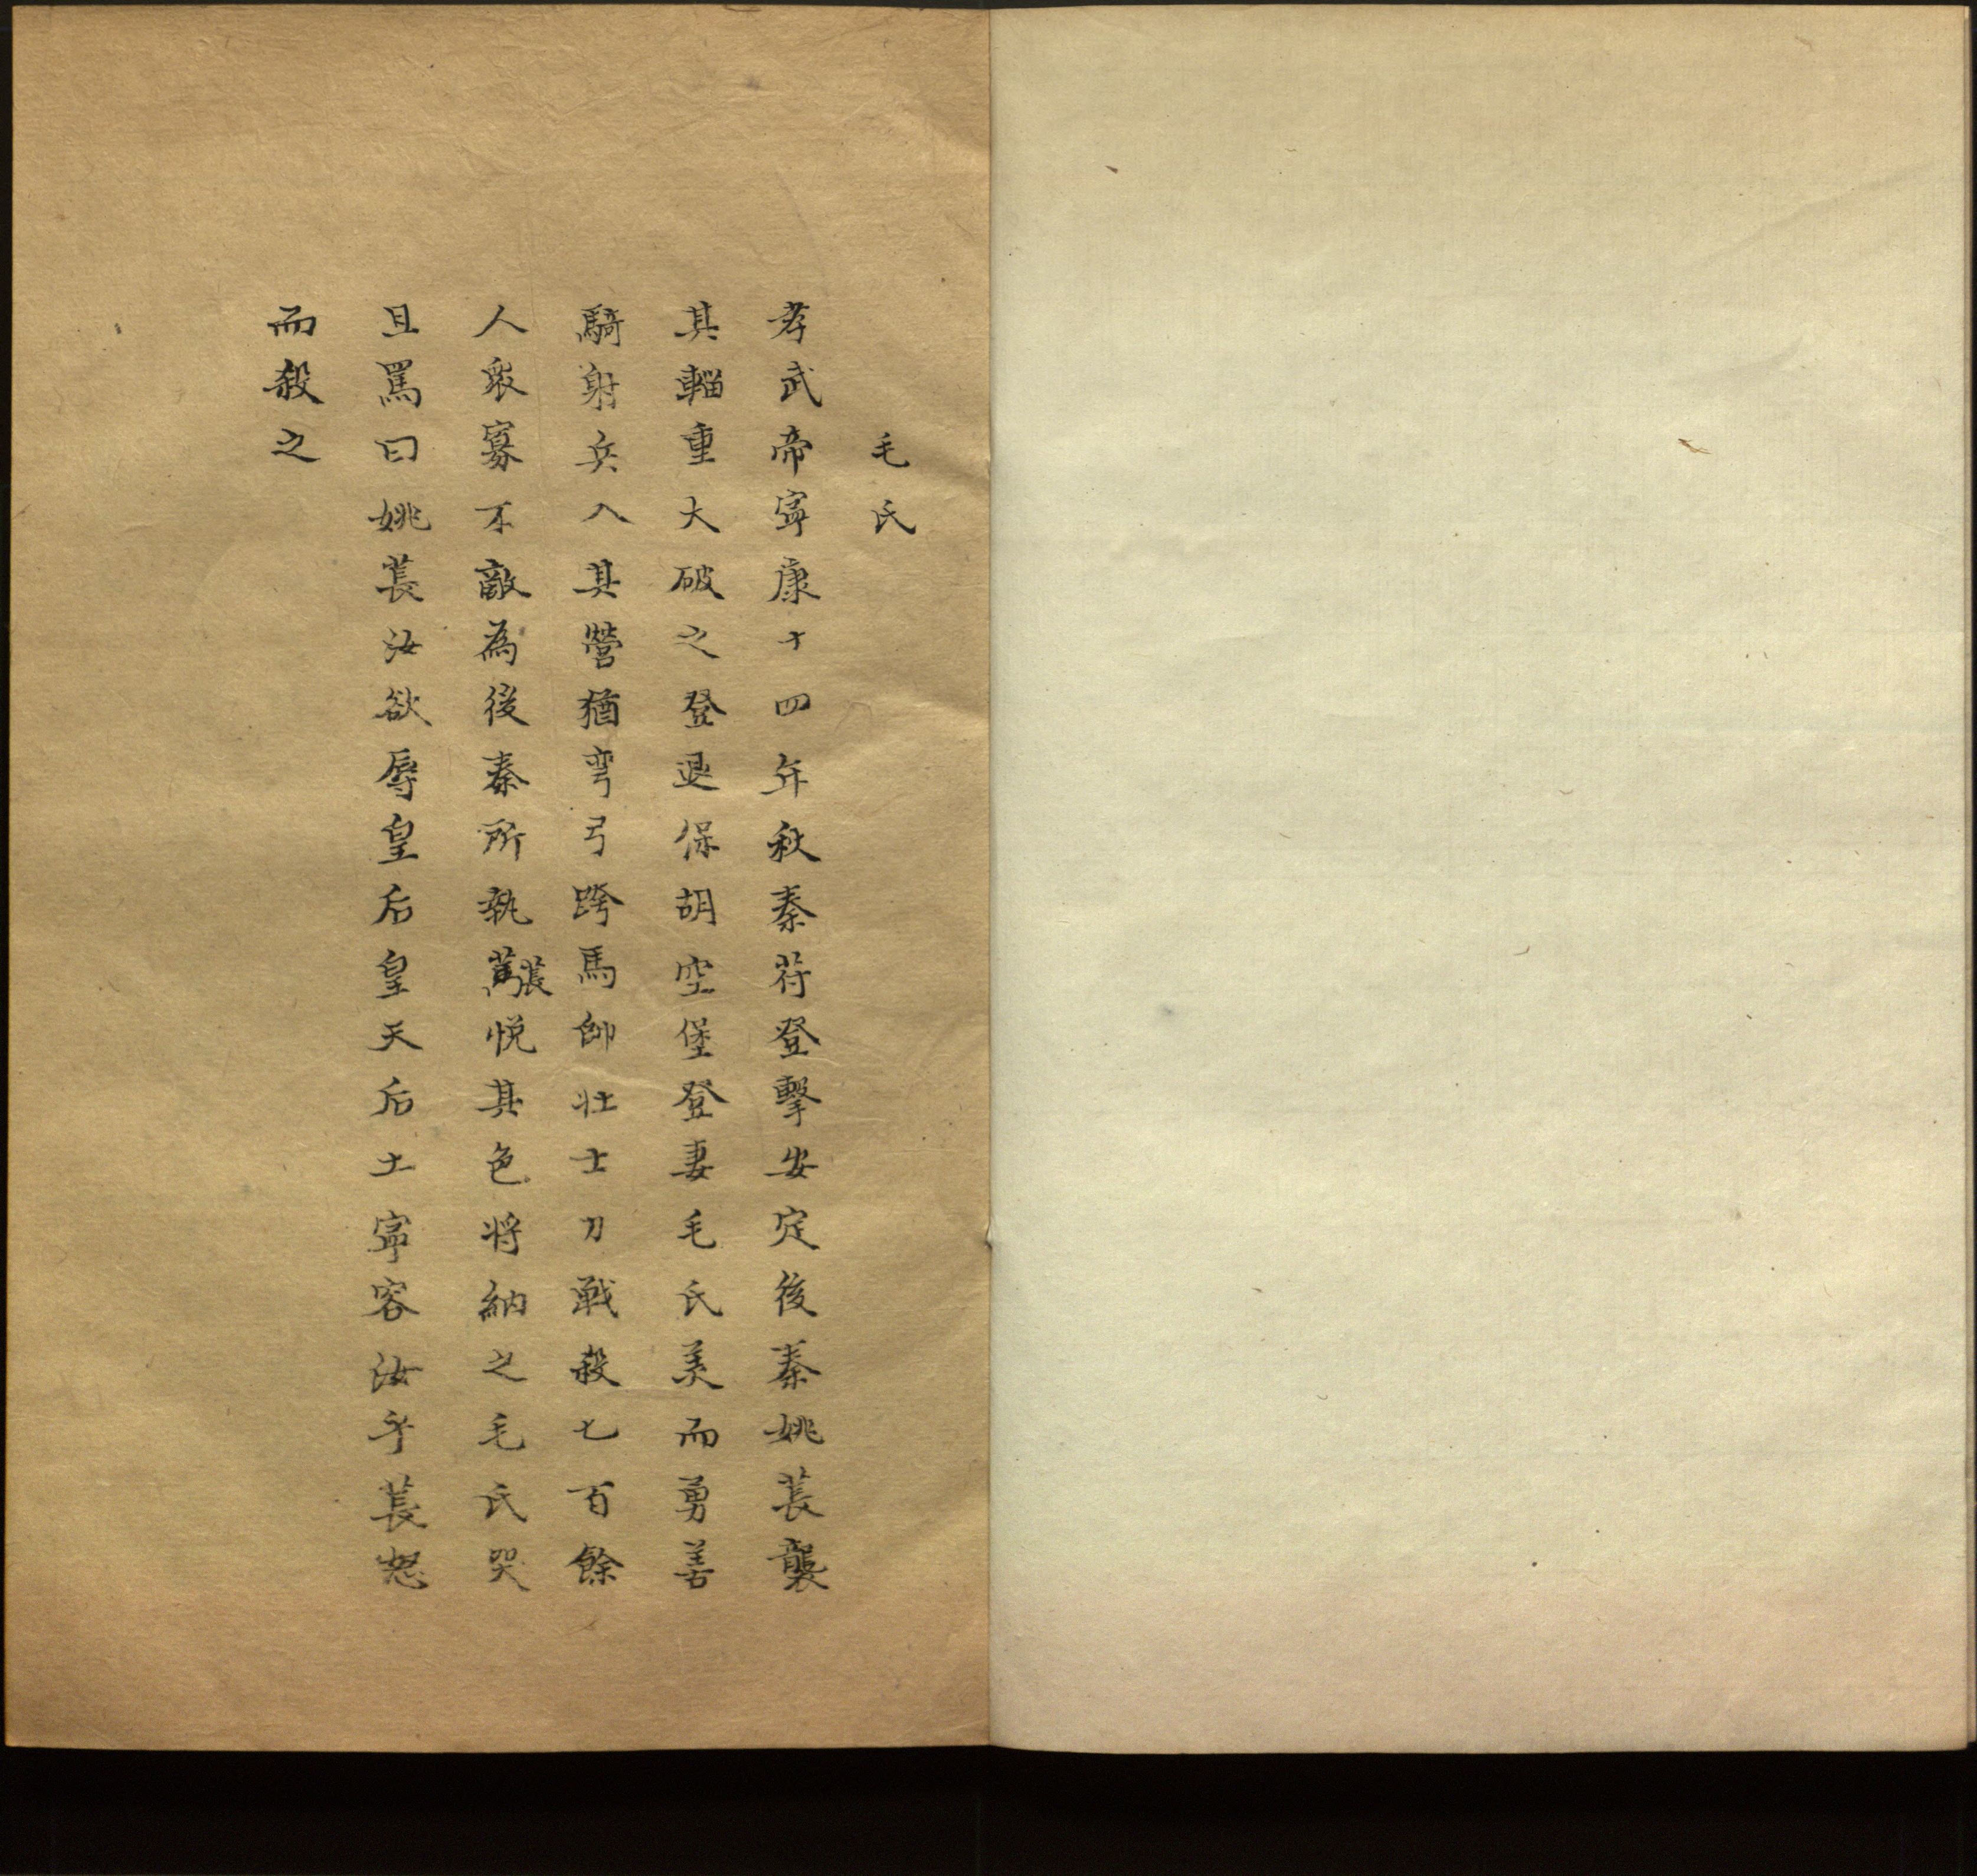 毛氏
孝武帝寧康十四年秋秦苻登擊安定後秦姚萇襲
其輜重大破之登退保胡空堡登妻毛氏美而勇善
騎射兵入其營猶彎弓跨馬帥壯士力戰殺七百餘
人衆寡不敵為後秦所執萇悅其色將納之毛氏哭
且罵曰姚萇汝欲辱皇后皇天后土寧容汝乎萇怒
而殺之